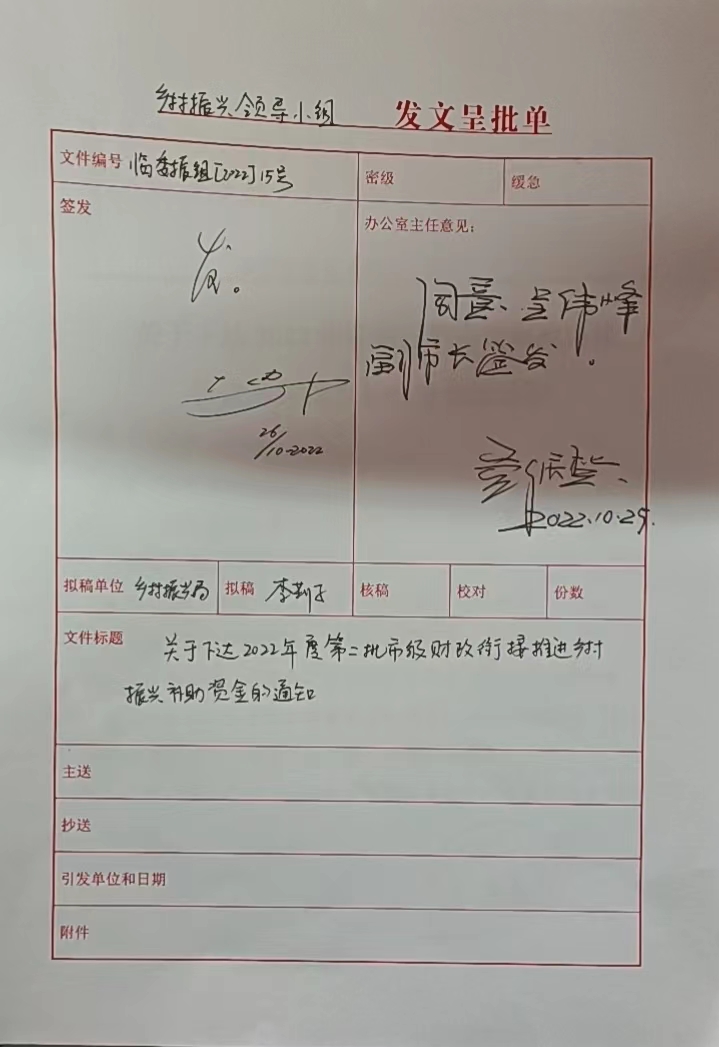 乡村振兴领导小组 发文呈批单
文件编号 临委振组[2022]15号
密级
缓急
签发
发。
26/10-2022
办公室主任意见：
阅意、呈伟峰
副市长签发。
2022.10.25.
拟稿单位 乡村振兴局
拟稿 李莉子
核稿
校对
份数
文件标题 关于下达2022年度第二批市级财政衔接推进乡村
振兴补助资金的通知
主送
抄送
引发单位和日期
附件